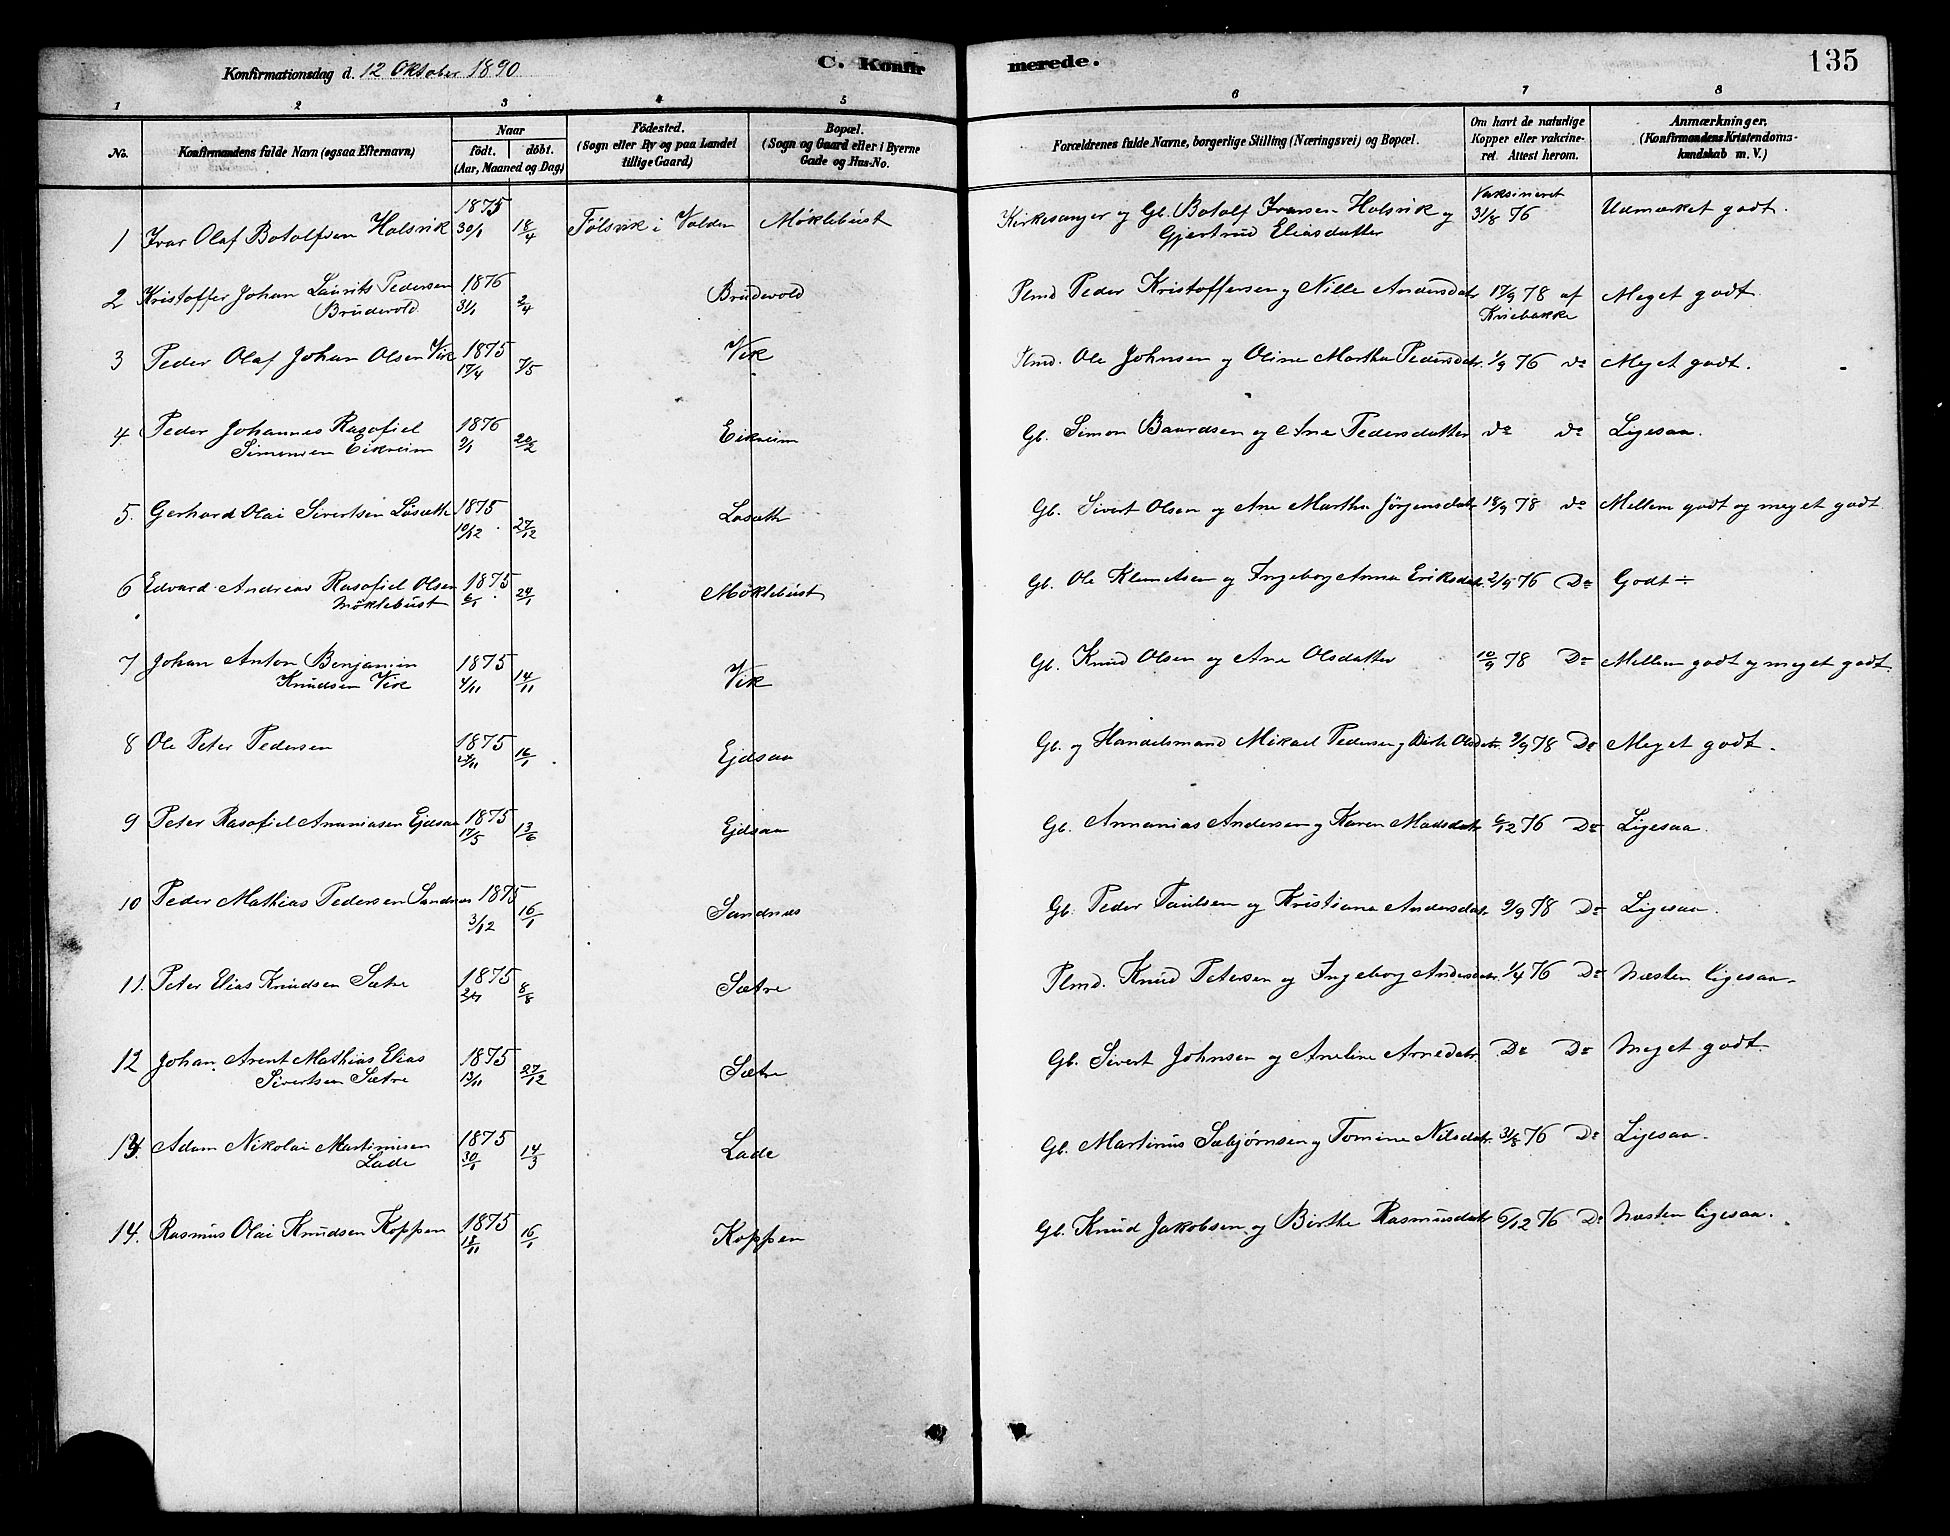 Konfirmationsdag d. 12 Oktober 1890
C. Konfirmerede.
135
1 2 3 4 5 6 7 8
No.
Konfirmandens fulde Navn (ogsaa Efternavn)
Naar
födt. döbt.
(Aar, Maaned og Dag)
Födested.
(Sogn eller By og paa Landet tillige Gaard)
Bopæl.
(Sogn og Gaard eller i Byerne Gade og Hus-No.
Forældrenes fulde Navne, borgerlige Stilling (Næringsvei) og Bopæl.
Om havt de naturlige Kopper eller vakcineret. Attest herom.
Anmærkninger.
(Konfirmandens Kristendomskundskab m. V.)
1 Ivar Olaf Botolfsen Holsvik 1875 30/1 18/4 Følsvik i Volden Møklebust Kirkesanger og Gb. Botolf Iversen Holsvik og Gjertrud Eliasdatter Vaksineret 31/8 76 Udmærket godt.
2 Kristoffer Johan Laurits Pedersen Brudevold 1876 31/1 2/4 Brudevold Plmd Peder Kristoffersen og Nille Andersdatr 17/9 78 af Meget godt
3 Peder Olaf Johan Olsen Vik 1875 17/4 7/5 Vik Plmd. Ole Johnsen og Oline Martha Pedersdatr. 1/9 76 do Meget godt.
4 Peder Johannes Rasofiel Simonsen Eikreim 1876 2/1 20/2 Eikreim Gb. Simon Baardsen og Ane Pedersdatter do do Ligesaa.
5. Gerhard Olai Sivertsen Løsæth 1875 10/12 27/12 Løsæth Gb. Sivert Olsen og Ane Martha Jørgensdatr 18/9 78 do Mellem godt og meget godt
6 Edvard Andreas Rasofiel Olsen Møklebust 1875 6/1 24/1 Møklebust Gb. Ole Klemetsen og Ingeborg Anna Eriksdatr. 2/9 76 Do Godt ÷
7 Johan Anton Benjamin Knudsen Vik 1875 4/11 14/11 Vik Gb. Knud Olsen og Ane Olsdatter 10/9 78 Do Mellem godt og meget godt
8 Ole Peter Pedersen 1875 16/1 Ejdsaa Gb. og Handelsmand Mikael Pedersen og Olsdatr 9/9 78 Do Meget godt.
9 Peter Rasofiel Ananiasen Ejdsaa 1875 17/5 13/6 Ejdsaa Gb. Annanias Andersen og Karen Madsdatr 6/12 76 Do Ligesaa.
10 Peder Mathias Pedersen Sandnes 1875 3/12 16/1 Sandnes Gb. Peder Paulsen og Kristiane Andersdatr 9/9 78 Do Ligesaa.
11. Peter Elias Knudsen Sætre 1875 8/8 Sætre Plmd. Knud Petersen og Ingeborg Andersdatr. 1/4 76 Do Næsten ligesaa.
12 Johan Arent Mathias Elias Sivertsen Sætre 1875 13/11 27/12 Sætre Gb. Sivert Johnsen og Aneline Arnedatr Do Do Meget godt.
13. Adam Nikolai Martinusen Lade 1875 30/1 14/3 Lade Gb. Martinus Sæbjørnsen og Tomine Nilsdatr. 31/8 76 Do Ligesaa.
14. Rasmus Olai Knudsen Koppen 1875 18/11 16/1 Koppen Gb. Knud Jakobsen og Birthe Rasmusdatr 6/12 76 Do Næsten ligesaa.